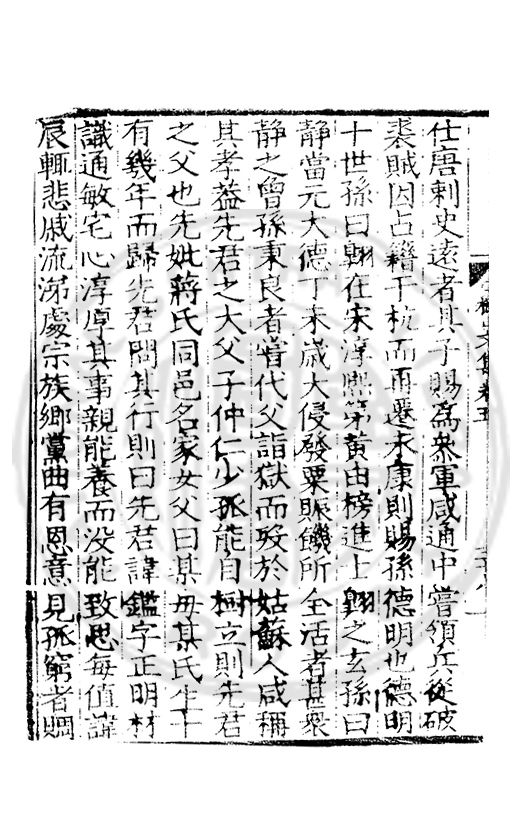 仕唐刺史遠者其子賜為叅軍咸通中嘗領兵從破
裘賊因占籍于杭而再遷永康則賜孫德明也德明
十世孫曰翺在宋淳熙第黄由榜進士翺之玄孫曰
靜當元大德丁未歲大侵發粟賑饑所全活者甚衆
靜之曾孫秉良者嘗代父詣獄而歿於姑蘇人咸稱
其孝葢先君之大父子仲仁少孤能自樹立則先君
之父也先妣蔣氏同邑名家女父曰某母某氏生十
有幾年而歸先君問其行則曰先君諱鑑字正明材
識通敏宅心淳厚其事親能養而没能致思每值諱
辰輒悲戚流涕處宗族鄉黨曲有恩意見孤窮者賙
文集卷五